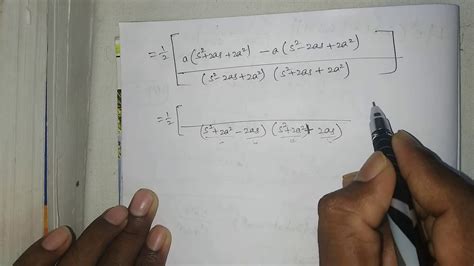 = 1/2 [ a(s²+2as+2a²) - a(s²-2as+2a²) / (s²-2as+2a²) (s²+2as+2a²) ]
= 1/2 [ / (s²+2a²-2as) (s²+2a²+2as)